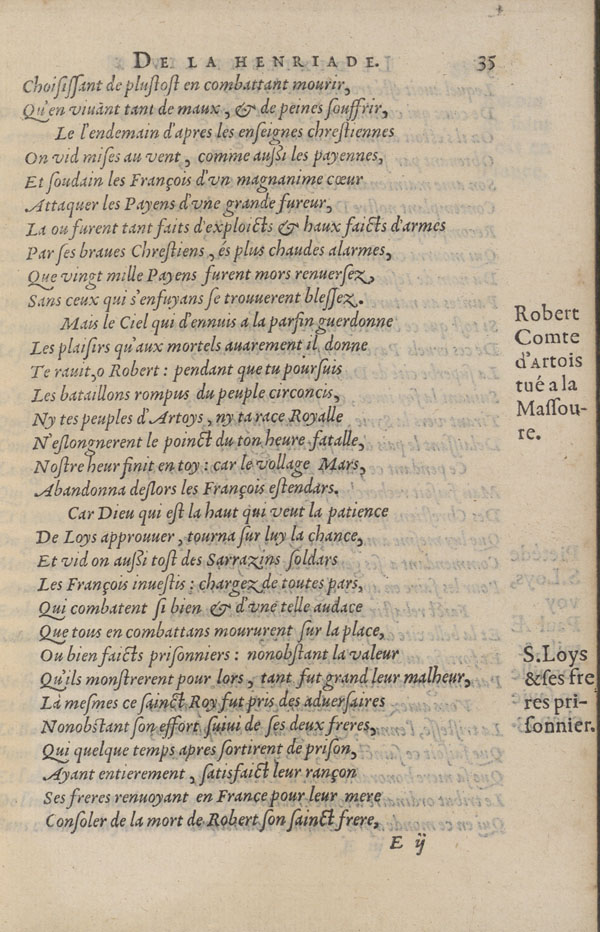 DE LA HENRIADE. 35
Choisissant de plustost en combattant mourir,
Qu'en viuãnt tant de maux, & de peines souffrir,
Le l'endemain d'apres les enseignes chrestiennes
On vid mises au vent, comme aussi les payennes,
Et soudain les François d'vn magnanime cœur
Attaquer les Payens d'vne grande fureur,
La ou furent tant faits d'exploicts & haux faicts d'armes
Par ses braues Chrestiens, és plus chaudes alarmes,
Que vingt mille Payens furent mors renuersez,
Sans ceux qui s'enfuyans se trouuerent blessez.
Mais le Ciel qui d'ennuis a la parfin guerdonne
Les plaisirs qu'aux mortels auarement il donne
Te rauit, o Robert : pendant que tu poursuis
Les bataillons rompus du peuple circoncis,
Ny tes peuples d'Artoys, ny ta race Royalle
N'eslongnerent le poinct du ton heure fatalle,
Nostre heur finit en toy : car le vollage Mars,
Abandonna deslors les François estendars.
Robert
Comte
d'Artois
tué a la
Massou-
re.
Car Dieu qui est la haut qui veut la patience
De Loys approuuer, tourna sur luy la chance,
Et vid on aussi tost des Sarrazins soldars
Les François inuestis : chargez de toutes pars,
Qui combatent si bien & d'vne telle audace
Que tous en combattans moururent sur la place,
Ou bien faicts prisonniers : nonobstant la valeur
Qu'ils monstrerent pour lors, tant fut grand leur malheur,
La mesmes ce sainct Roy fut pris des aduersaires
Nonobstant son effort suiui de ses deux freres,
Qui quelque temps apres sortirent de prison,
Ayant entierement, satisfaict leur rançon
Ses freres renuoyant en France pour leur mere
Consoler de la mort de Robert son sainct frere,
S. Loys
& ses fre
res pri-
sonnier.
E ij